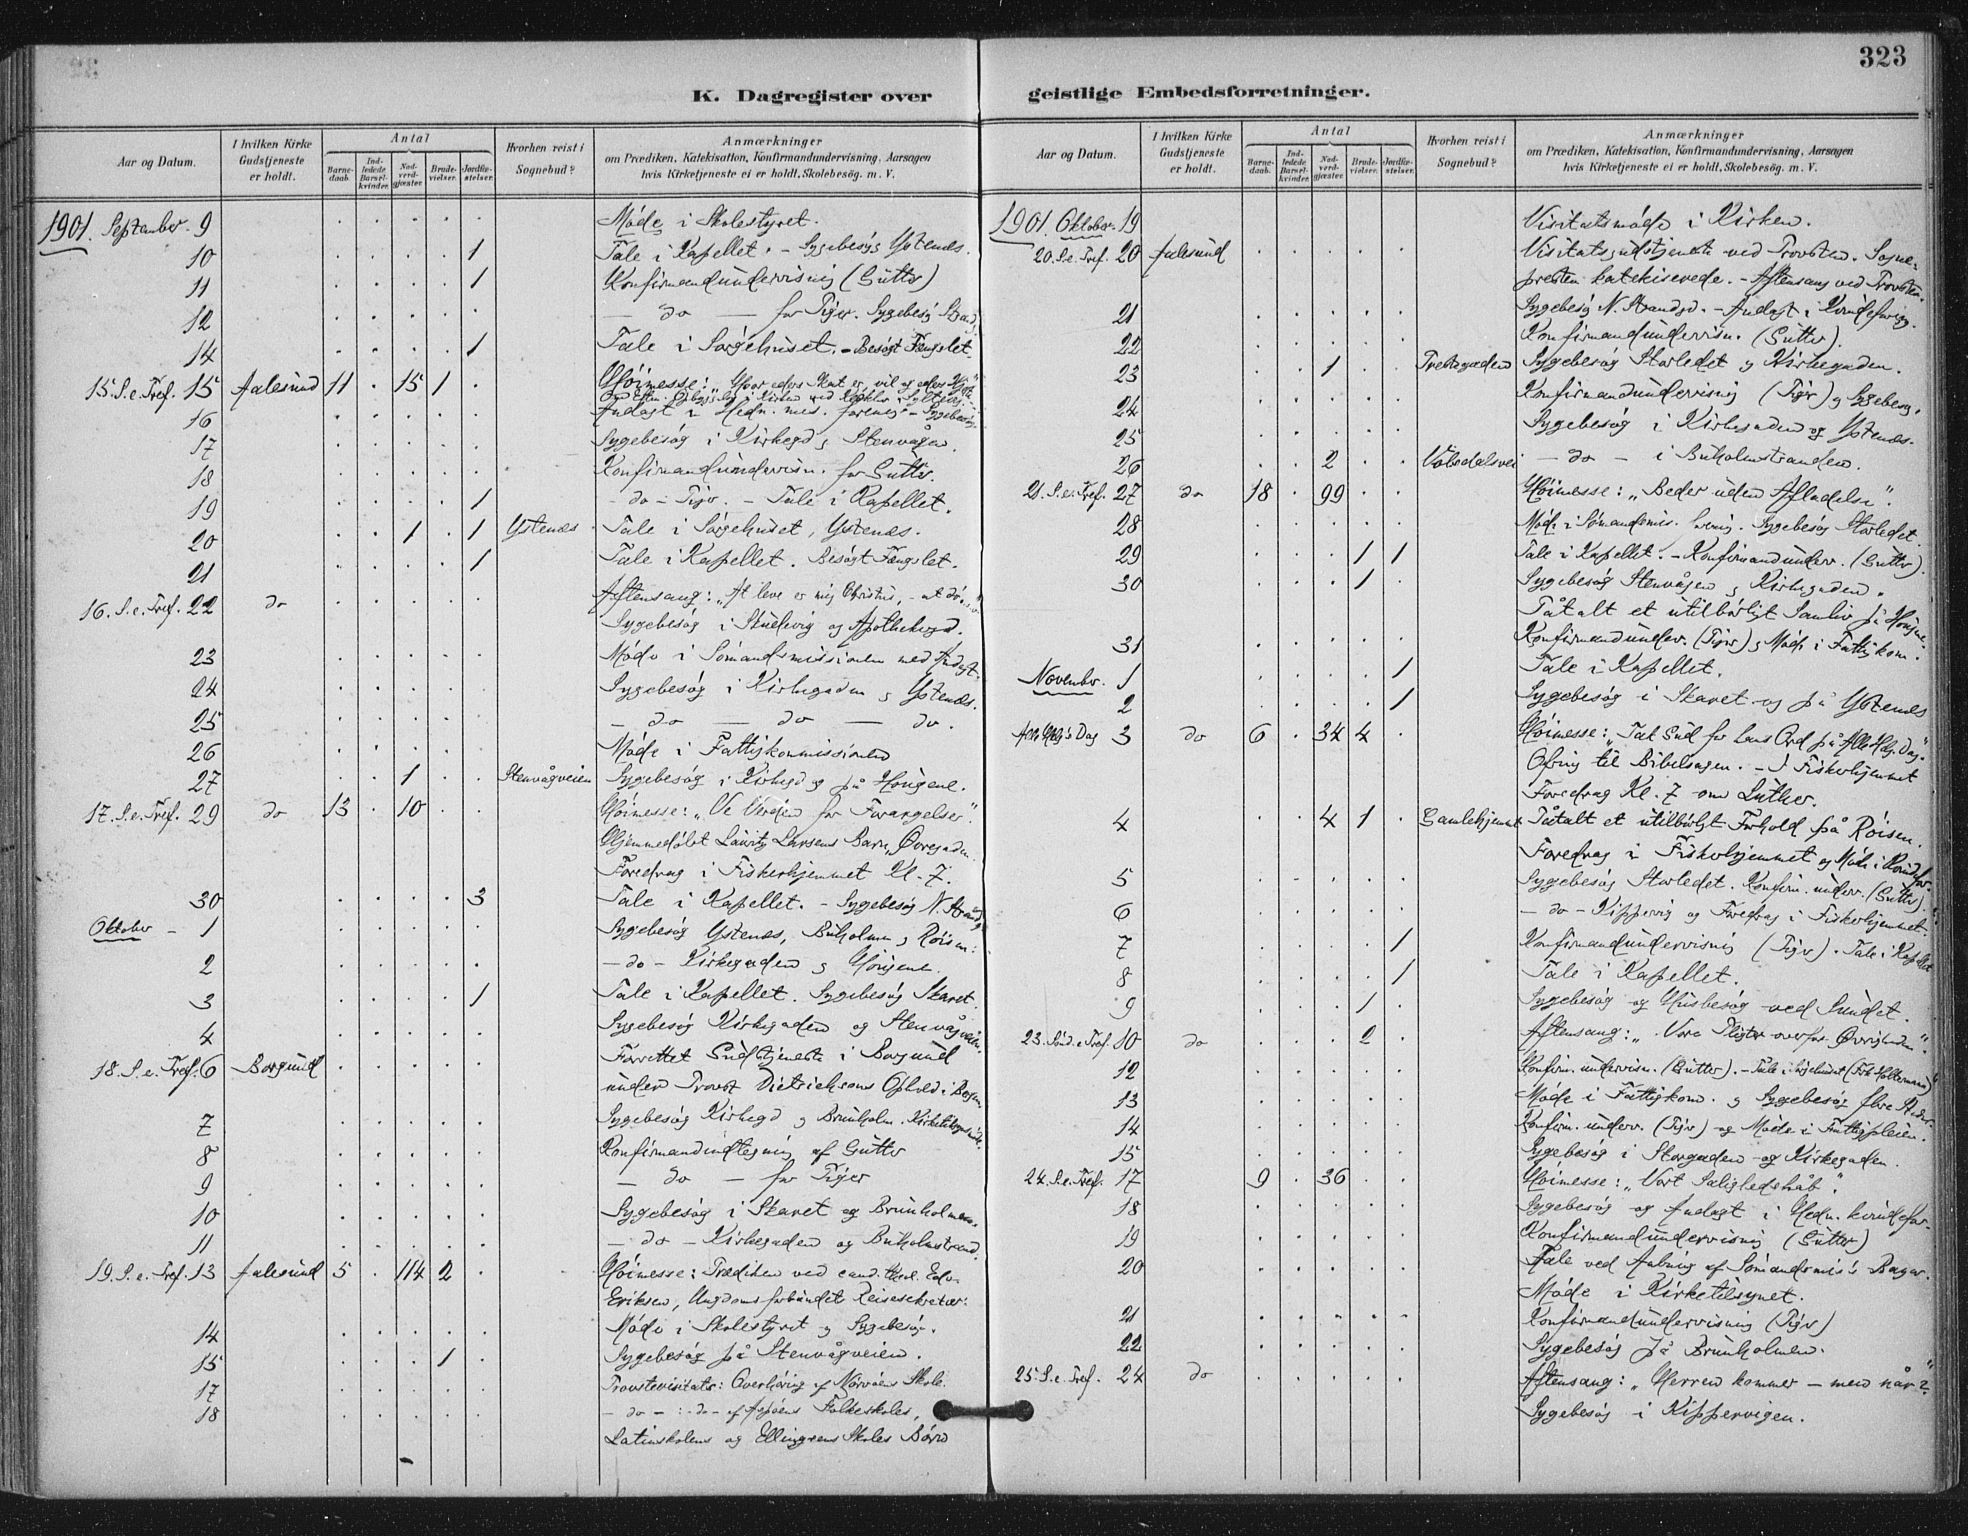 323
K. Dagregister over geistlige Embedsforretninger.
Aar og Datum. I hvilken Kirke Gudstjeneste er holdt. Antal Barnedaab. Indledede Barselkvinder. Nadverdgjæster. Brudevielser. Jordfæstelser. Hvorhen reist i Sognebud? Anmærkninger om Prædiken, Katekisation, Konfirmandundervisning, Aarsagen hvis Kirketjeneste ei er holdt, Skolebesøg. m. V.
1901. September 9 Møde i Skolestyret.
10 1 Tale i Kapellet. - Sygebesøg Ystenæs.
11 1 Konfirmandundervisning (Gutter)
12 — do — for Piger. Sygebesøg
14 1 Tale i Sørgehuset. - Besøgt Fængslet.
15. S. e. Tref. 15 Aalesund 11 15 1 Høimesse: „Hvor eders Skat er, vil og eders Hjerte
16 Andagt i Hedn. mis. forening - Sygebesøg
17 Sygebesøg i Kirkegd og Stenvågen.
18 Konfirmandundervisn. for Gutter.
19 1 - do - Piger. - Tale i Kapellet.
20 1 1 Ystenæs Tale i Sørgehuset, Ystenæs.
21 1 Tale i Kapellet. Besøgt Fængslet.
16. S. e. Tref. 22 do Aftensang: „At leve er mig Christus, - at dø
Sygebesøg i Skudevig og Apothekergd.
23 Møde i Sømandsmissionen med Andagt.
24 Sygebesøg i Kirkegaden og Ystenæs.
25 — do — do — do.
26 Møde i Fattigkommissionen
27 1 Stenvågveien Sygebesøg i Kirkegd og på Haugene.
17. S. e. Tref. 29 do 13 10 Høimesse: „Ve Verden for Forargelser".
Hjemmedøbt Lauritz Larsens Barn, Øvregaden.
Foredrag i Fiskerhjemmet Kl. 7.
30 3 Tale i Kapellet. - Sygebesøg N. Strand
Oktober - 1 Sygebesøg Ystenæs, Buholmen, Røisen:
2 - do - Kirkegaden og Haugene.
3 1 Tale i Kapellet. Sygebesøg Skaret
4 Sygebesøg Kirkegaden og Stenvågveien.
18. S. e. Tref. 6 Borgund Forrettet Gudstjeneste i Borgund
under Provst Dietrichsons Ophold i Bergen.
7 Sygebesøg Kirkegd og Brunholm.
8 Konfirmandindtegning af Gutter
9 — do — for Piger
10 Sygebesøg i Skaret og Brunholmen.
11 - do - Kirkegaden og Buholmstrand.
19. S. e. Tref. 13 Aalesund 5 114 2 Høimesse: Prædiken ved cand. theol. Edv.
Eriksen, Ungdomsforbundets Reisesekretær.
14 Møde i Skolestyret og Sygebesøg.
15 1 Sygebesøg på Stenvågveien.
17 Provstevisitats: Overhøring af Nørvøens Skole.
18 - do - : - do - af Aspøens Folkeskoles,
Latinskolens og Ellingsens Skoles Børn
Aar og Datum. I hvilken Kirke Gudstjeneste er holdt. Antal Barnedaab. Indledede Barselkvinder. Nadverdgjæster. Brudevielser. Jordfæstelser. Hvorhen reist i Sognebud? Anmærkninger om Prædiken, Katekisation, Konfirmandundervisning, Aarsagen hvis Kirketjeneste ei er holdt, Skolebesøg. m. V.
1901. Oktober. 19 Visitatsmøde i Kirken.
20. S. e. Tref. 20 Aalesund Visitatsgudstjeneste ved Provsten. Sogne-
presten katekiserede. - Aftensang ved Provsten.
21 Sygebesøg N. Strandgd. - Andagt i Kvindeforeng.
22 Konfirmandundervisn. (Gutter).
23 1 Sygebesøg Storledet og Kirkegaden.
24 Konfirmandundervisning (Piger) og Sygebesøg.
25 Sygebesøg i Kirkegaden og Ystenæs.
26 2 Volsdalsvei — do — i Buholmstranden.
21. S. e. Tref. 27 do 18 99 Høimesse: „Beder uden Afladelse".
28 Møde i Sømandsmis. foreng. Sygebesøg Storledet.
29 1 1 Tale i Kapellet. - Konfirmandunderv. (Gutter).
30 1 Sygebesøg Stenvågen og Kirkegaden.
Påtalt et utilbørligt Samliv på Haugene
31 Konfirmandunderv. (Piger) og Møde i Fattigkom.
November. 1 1 Tale i Kapellet.
2 1 Sygebesøg i Skaret og på Ystenæs
Alle Helg's Dag 3 do 6 34 4 Høimesse: „Tak Gud for hans Ord på Alle Helg. Dag".
Ofring til Bibelsagen. - I Fiskerhjemmet
Foredrag Kl. 7 om Luther.
4 4 1 Gamlehjemmet Påtalt et utilbørligt Forhold på Røisen.
Foredrag i Fiskerhjemmet og Møde i
5 Sygebesøg Storledet. Konfirm. underv. (Gutter).
6 - do - Kippervig og Foredrag i Fiskerhjemmet.
7 1 Konfirmandundervisning (Piger). Tale i Kapellet
8 1 Tale i Kapellet.
9 1 Sygebesøg og Husbesøg ved Sundet.
23. Sønd. e Tref. 10 do 2 Aftensang: „Vore Pligter overfor Øvrigheden".
12 Konfirm. undervisn. (Gutter). - Tale i
13 Møde i Fattigkom. og Sygebesøg flere Steder.
14 Konfirm. underv. (Piger) og Møde i Fattigpleien.
15 Sygebesøg i Storgaden og Kirkegaden.
24. S. e. Tref. 17 9 36 Høimesse: „Vort Salighedshåb".
18 Sygebesøg og Andagt i Hedn. kvindefor.
19 Konfirmandundervisning (Gutter)
20 Tale ved Åbning af Sømandsmis's Bazar.
Møde i Kirketilsynet.
21 Konfirmandundervisning (Piger)
22 Sygebesøg på Brunholmen.
25. S. e. Tref. 24 do Aftensang: „Herren kommer - men når?"
Sygebesøg i Kippervigen.